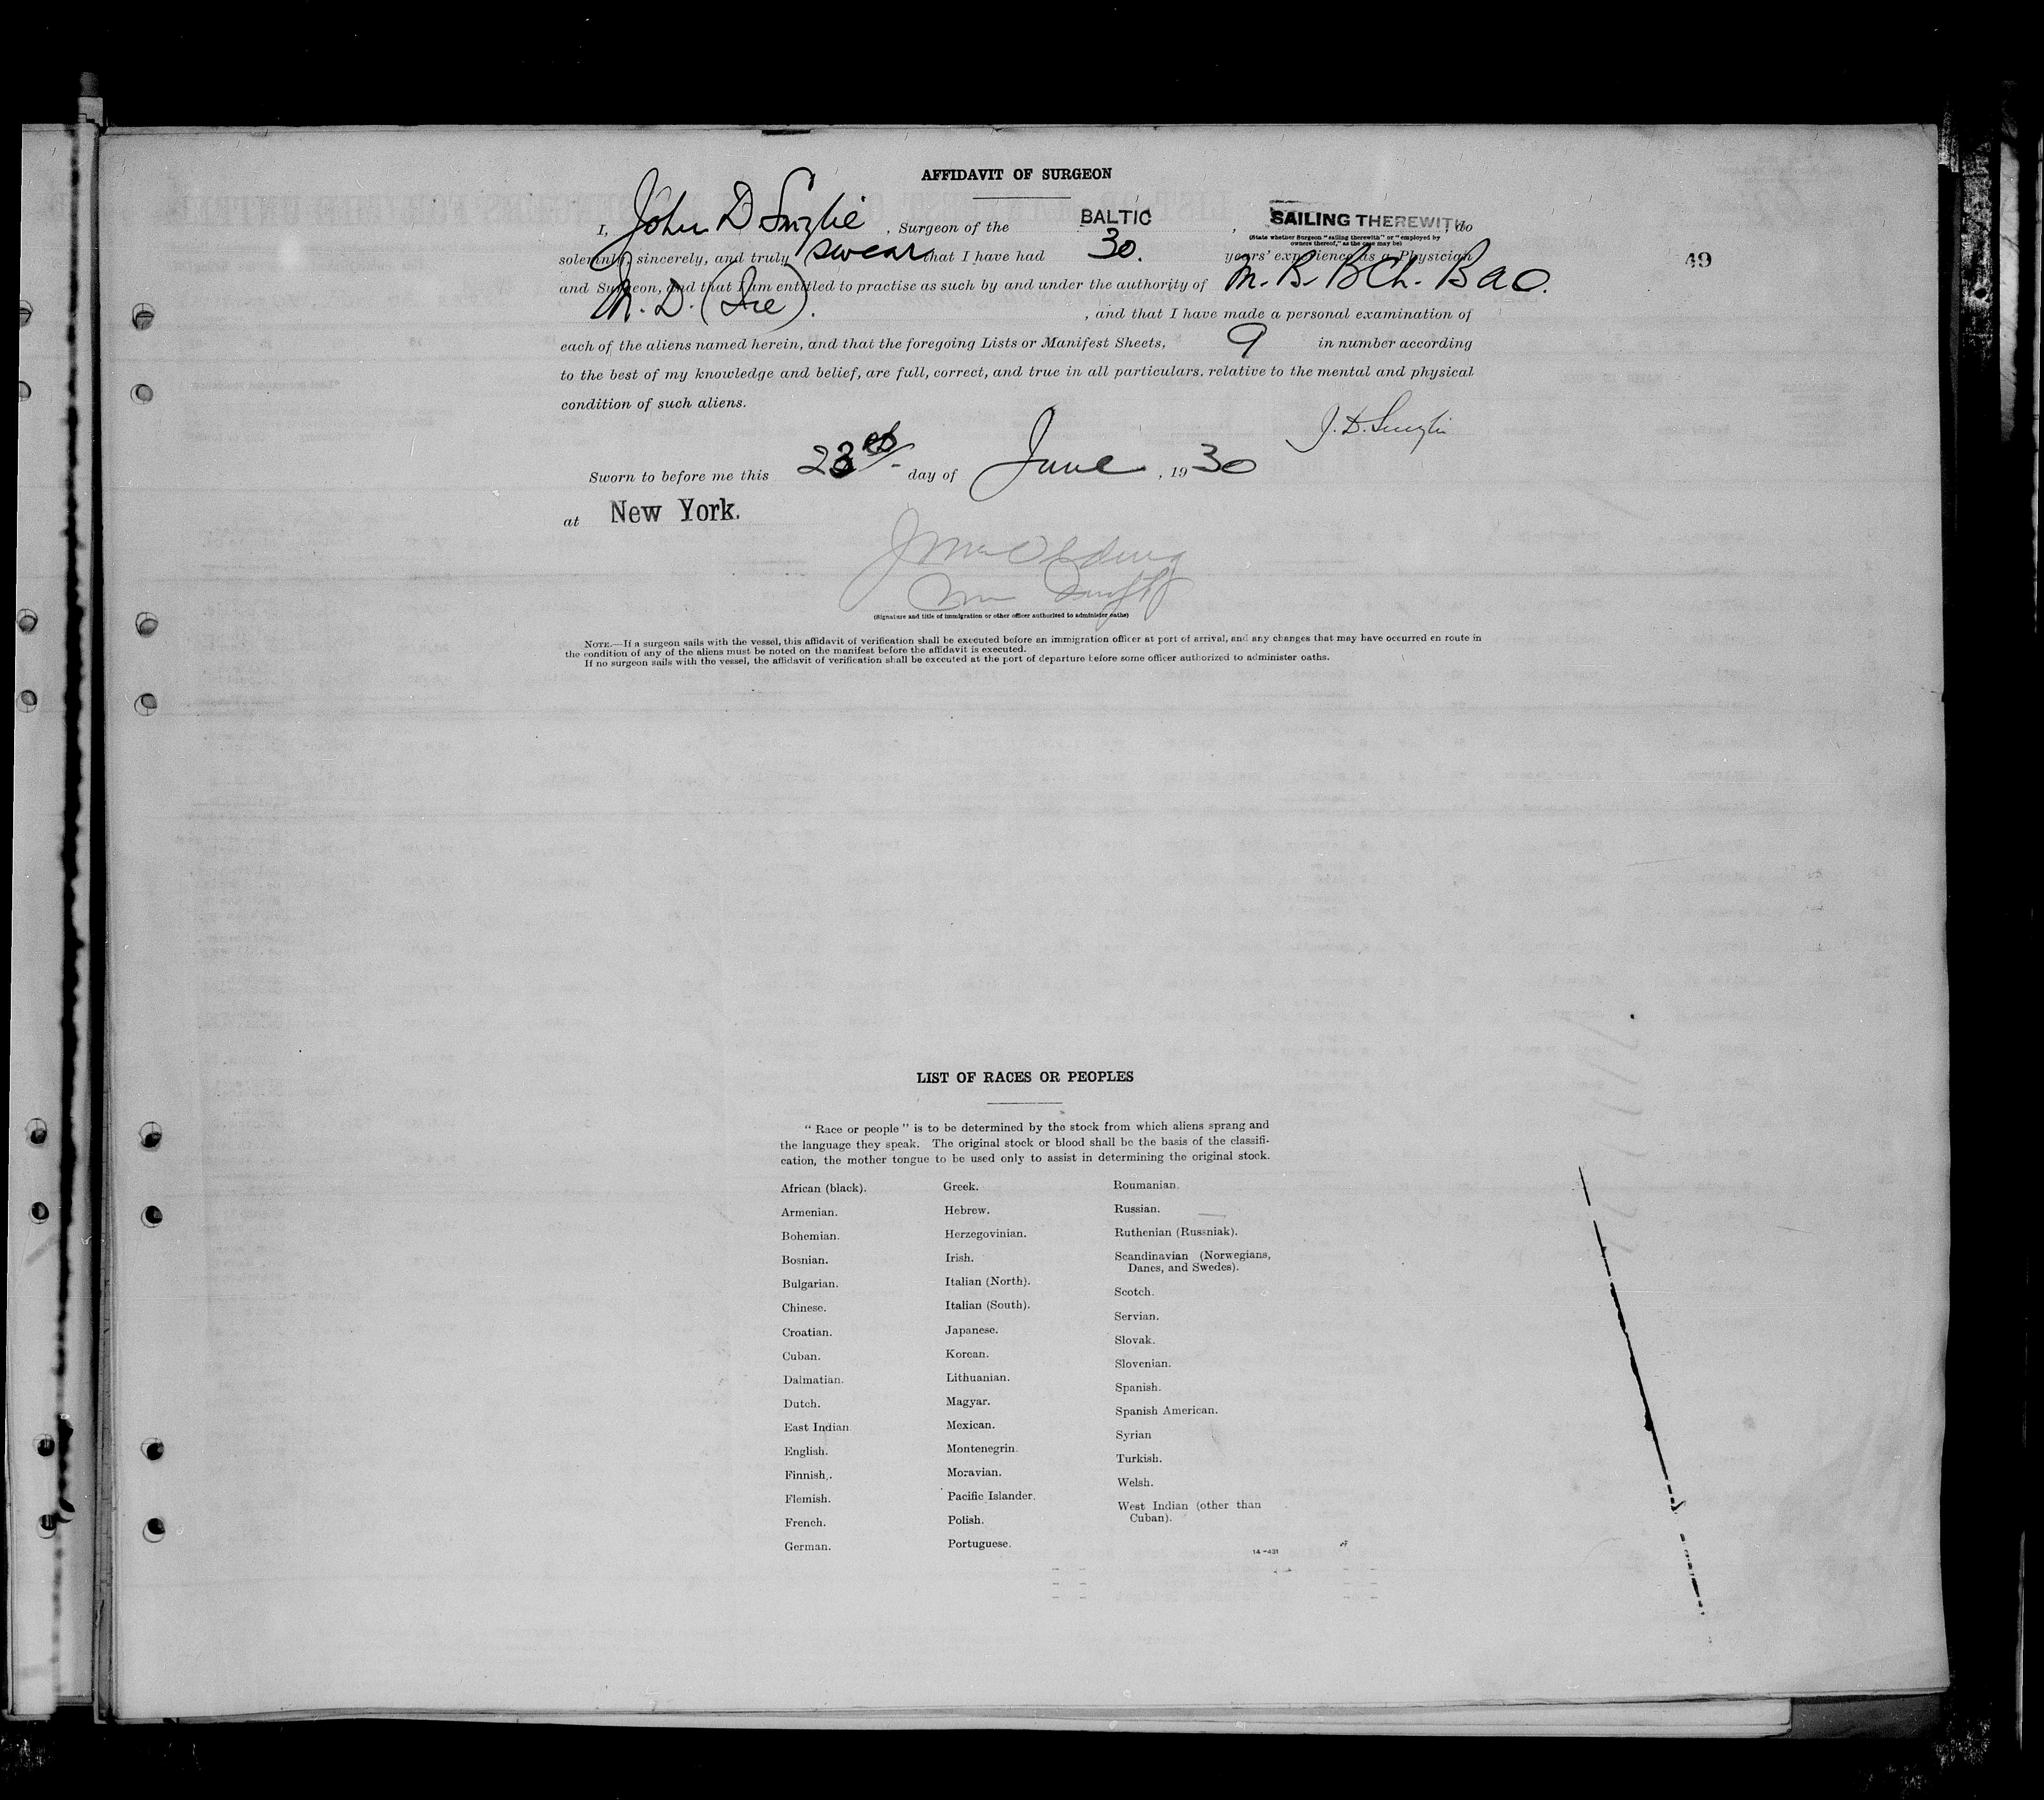 AFFIDAVIT OF SURGEON
I, John D , Surgeon of the BALTIC , SAILING THEREWITH, do
(State whether Surgeon "sailing therewith" or "employed by
owners thereof," as the case may be)
solemnly, sincerely, and truly swear that I have had 30. years' experience as a Physician
49
and Surgeon, and that I am entitled to practise as such by and under the authority of M. B. BCh. BAO.
M. D. (Ire). , and that I have made a personal examination of
each of the aliens named herein, and that the foregoing Lists or Manifest Sheets, 9 in number according
to the best of my knowledge and belief, are full, correct, and true in all particulars, relative to the mental and physical
condition of such aliens.
J. D.
Sworn to before me this 23rd day of June, 1930
at New York.
(Signature and title of immigration or other officer authorized to administer oaths)
NOTE.—If a surgeon sails with the vessel, this affidavit of verification shall be executed before an immigration officer at port of arrival, and any changes that may have occurred en route in
the condition of any of the aliens must be noted on the manifest before the affidavit is executed.
If no surgeon sails with the vessel, the affidavit of verification shall be executed at the port of departure before some officer authorized to administer oaths.
LIST OF RACES OR PEOPLES
" Race or people " is to be determined by the stock from which aliens sprang and
the language they speak. The original stock or blood shall be the basis of the classifi-
cation, the mother tongue to be used only to assist in determining the original stock.
African (black).
Armenian.
Bohemian.
Bosnian.
Bulgarian.
Chinese.
Croatian.
Cuban.
Dalmatian.
Dutch.
East Indian
English.
Finnish.
Flemish.
French.
German.
Greek.
Hebrew.
Herzegovinian.
Irish.
Italian (North).
Italian (South).
Japanese.
Korean.
Lithuanian.
Magyar.
Mexican.
Montenegrin.
Moravian.
Pacific Islander.
Polish.
Portuguese.
Roumanian.
Russian.
Ruthenian (Russniak).
Scandinavian (Norwegians,
Danes, and Swedes).
Scotch.
Servian.
Slovak.
Slovenian.
Spanish.
Spanish American.
Syrian
Turkish.
Welsh.
West Indian (other than
Cuban).
14—431